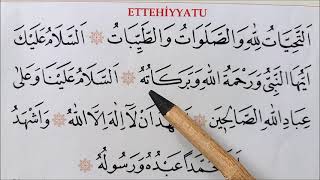 ETTEHİYYATU
اَلتَّحِيَّاتُ لِلّٰهِ وَالصَّلَوَاتُ وَالطَّيِّبَاتُ ❋ اَلسَّلَامُ عَلَيْكَ
اَيُّهَا النَّبِيُّ وَرَحْمَةُ اللهِ وَبَرَكَاتُهُ ❋ اَلسَّلَامُ عَلَيْنَا وَعَلٰى
عِبَادِ اللهِ الصَّالِحِينَ ❋ اَنْ لَا اِلٰهَ اِلَّا اللهُ ❋ وَاَشْهَدُ
عَبْدُهُ وَرَسُولُهُ ❋